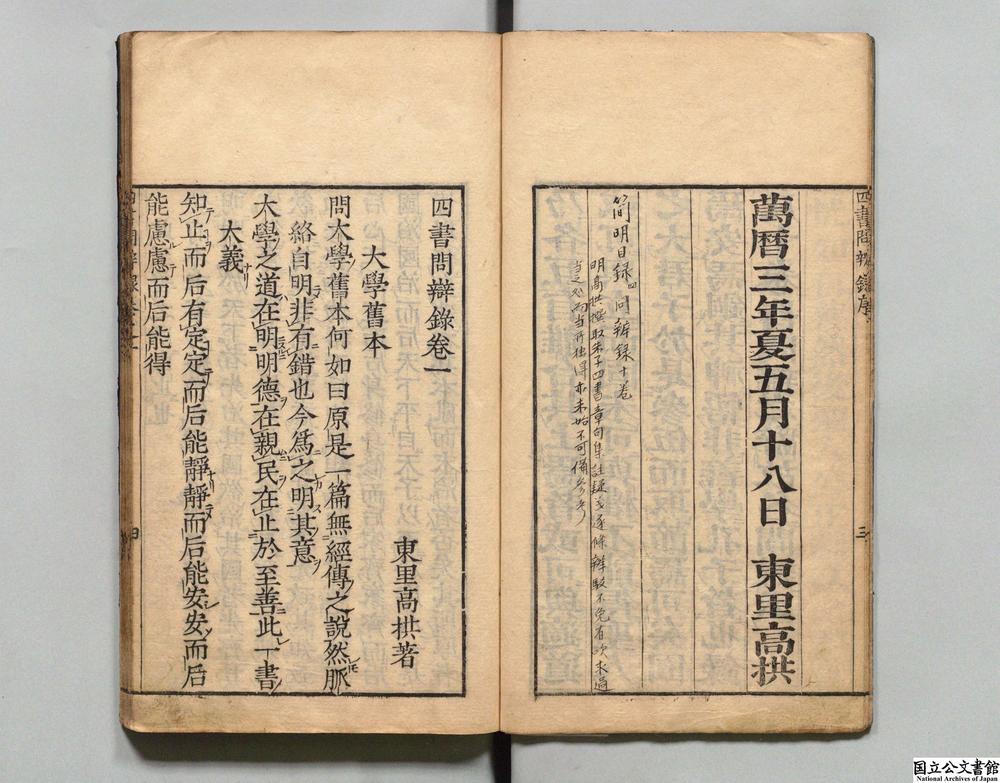 萬曆三年夏五月十八日 東里高拱
簡明目録 四 問辨録十卷
明高拱撰取朱子四書章句集註疑義逐條辨駁不免有次求過
当之処而当所独得亦未始不可備参考
四書問辯錄卷一
東里高拱著
大學舊本
問大學舊本何如曰原是一篇無經傳之說然脈
絡自明非有錯也今爲之明其意
大學之道在明明德在親民在止於至善此一書
大義
知止而后有定定而后能靜靜而后能安安而后
能慮慮而后能得
国立公文書館
National Archives of Japan